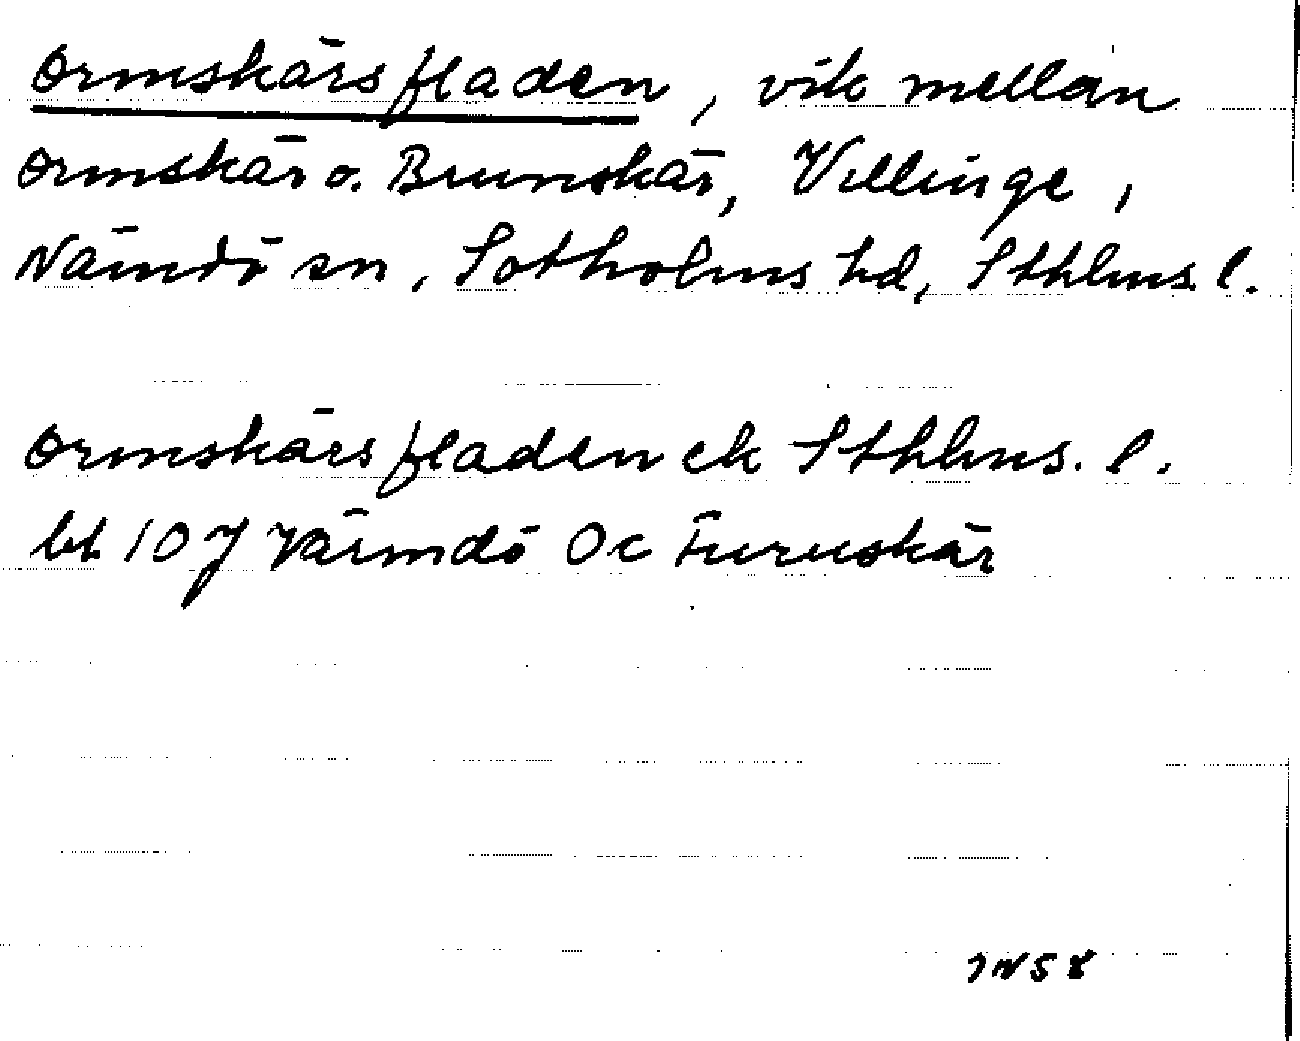 Ormskärsfladen, vik mellan
Ormskär o. Brunskär, Villinge,
Nämdö sn, Sotholms hd, Sthlms l.
Ormskärsfladen ek Sthlms. l.
bl 107 Värmdö Oc Furuskär